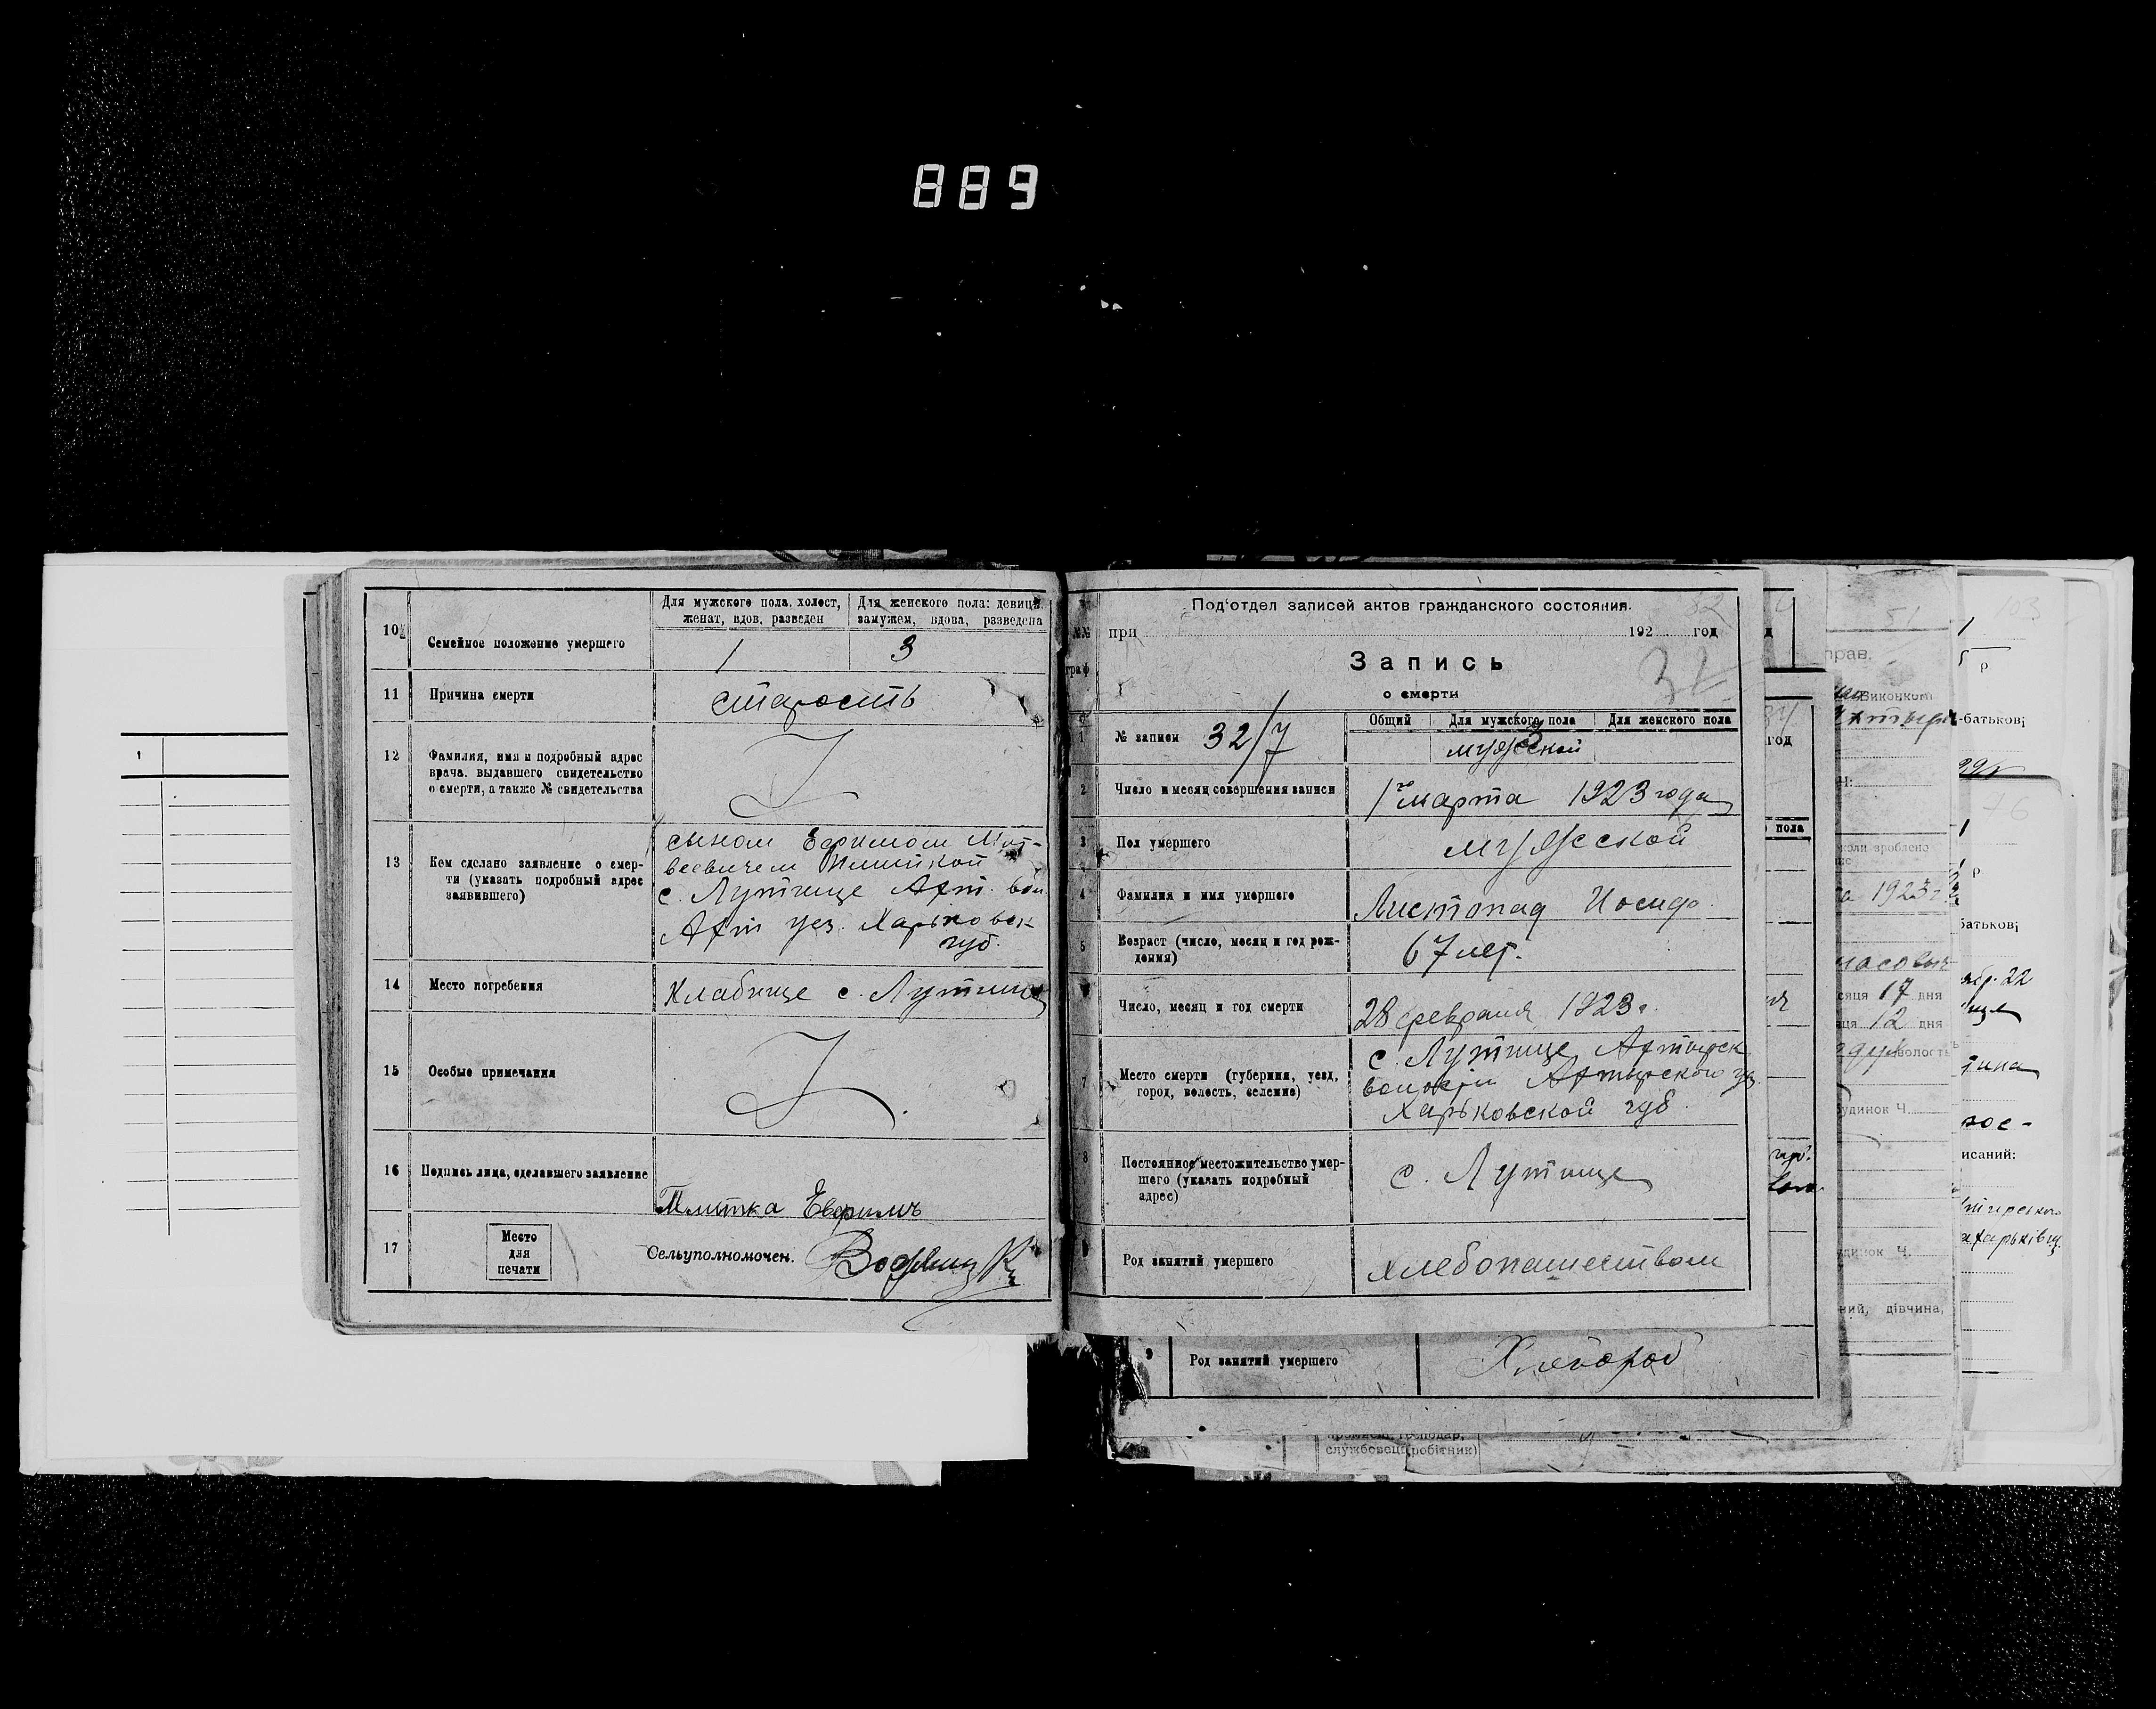 889
10
Семейное положение умершего
Для мужского пола. холост,
женат, вдов. разведен
Для женского пола: девица.
замужем, вдова, рззведена
1
3
11
Причина смерти
старость
12
Фамилия, имя и подробный адрес
врача. выдавшего свидетельство
о смерти, а также № свидетельства
13
Кем сделано заявление о смер-
ти (указать подробный адрес
заявившего)
сыном Ефимом Мат-
веевичем
с. Лутище Ахт. вол.
Ахт уез. Харьковск
губ.
14
Место погребения
Кладбище с. Лутище
15
Особые примечания
16
Подпись лица, сделавшего заявление
Плитка Евфимъ
17
Место
для
печати
Сельуполномочен.
Под'отдел записей актов гражданского состояния.
№№
граф
при
192 год
Запись
о смерти
32
1
№ записи
32/7
Общий
Для мужского пола
Для женского пола
мужской
2
Число и месяц совершения записи
1го марта 1923 года
3
Пол умершего
мужеской
4
Фамилия и имя умершего
Листопад Иосиф
5
Возраст (число, месяц и год рож-
дения)
67 лет.
Число, месяц и год смерти
28 февраля 1923 г.
7
Место смерти (губерния, уезд,
город, волость, селение)
с. Лутище Ахтырск
волости Ахтырского уз.
Харьковской губ.
8
Постоянное местожительство умер-
шего (указать подробный
адрес)
с. Лутище
Род занятий умершего
хлебопашеством
9
Род занятий умершего
Хлебороб
службовець, робітник)
1
год
пола
прав.
Виконком
51
103
-батькові
1923 г.
батькові
17 дня
12 дня
волость
будинок Ч.
будинок Ч.
дівчина,
исаний: